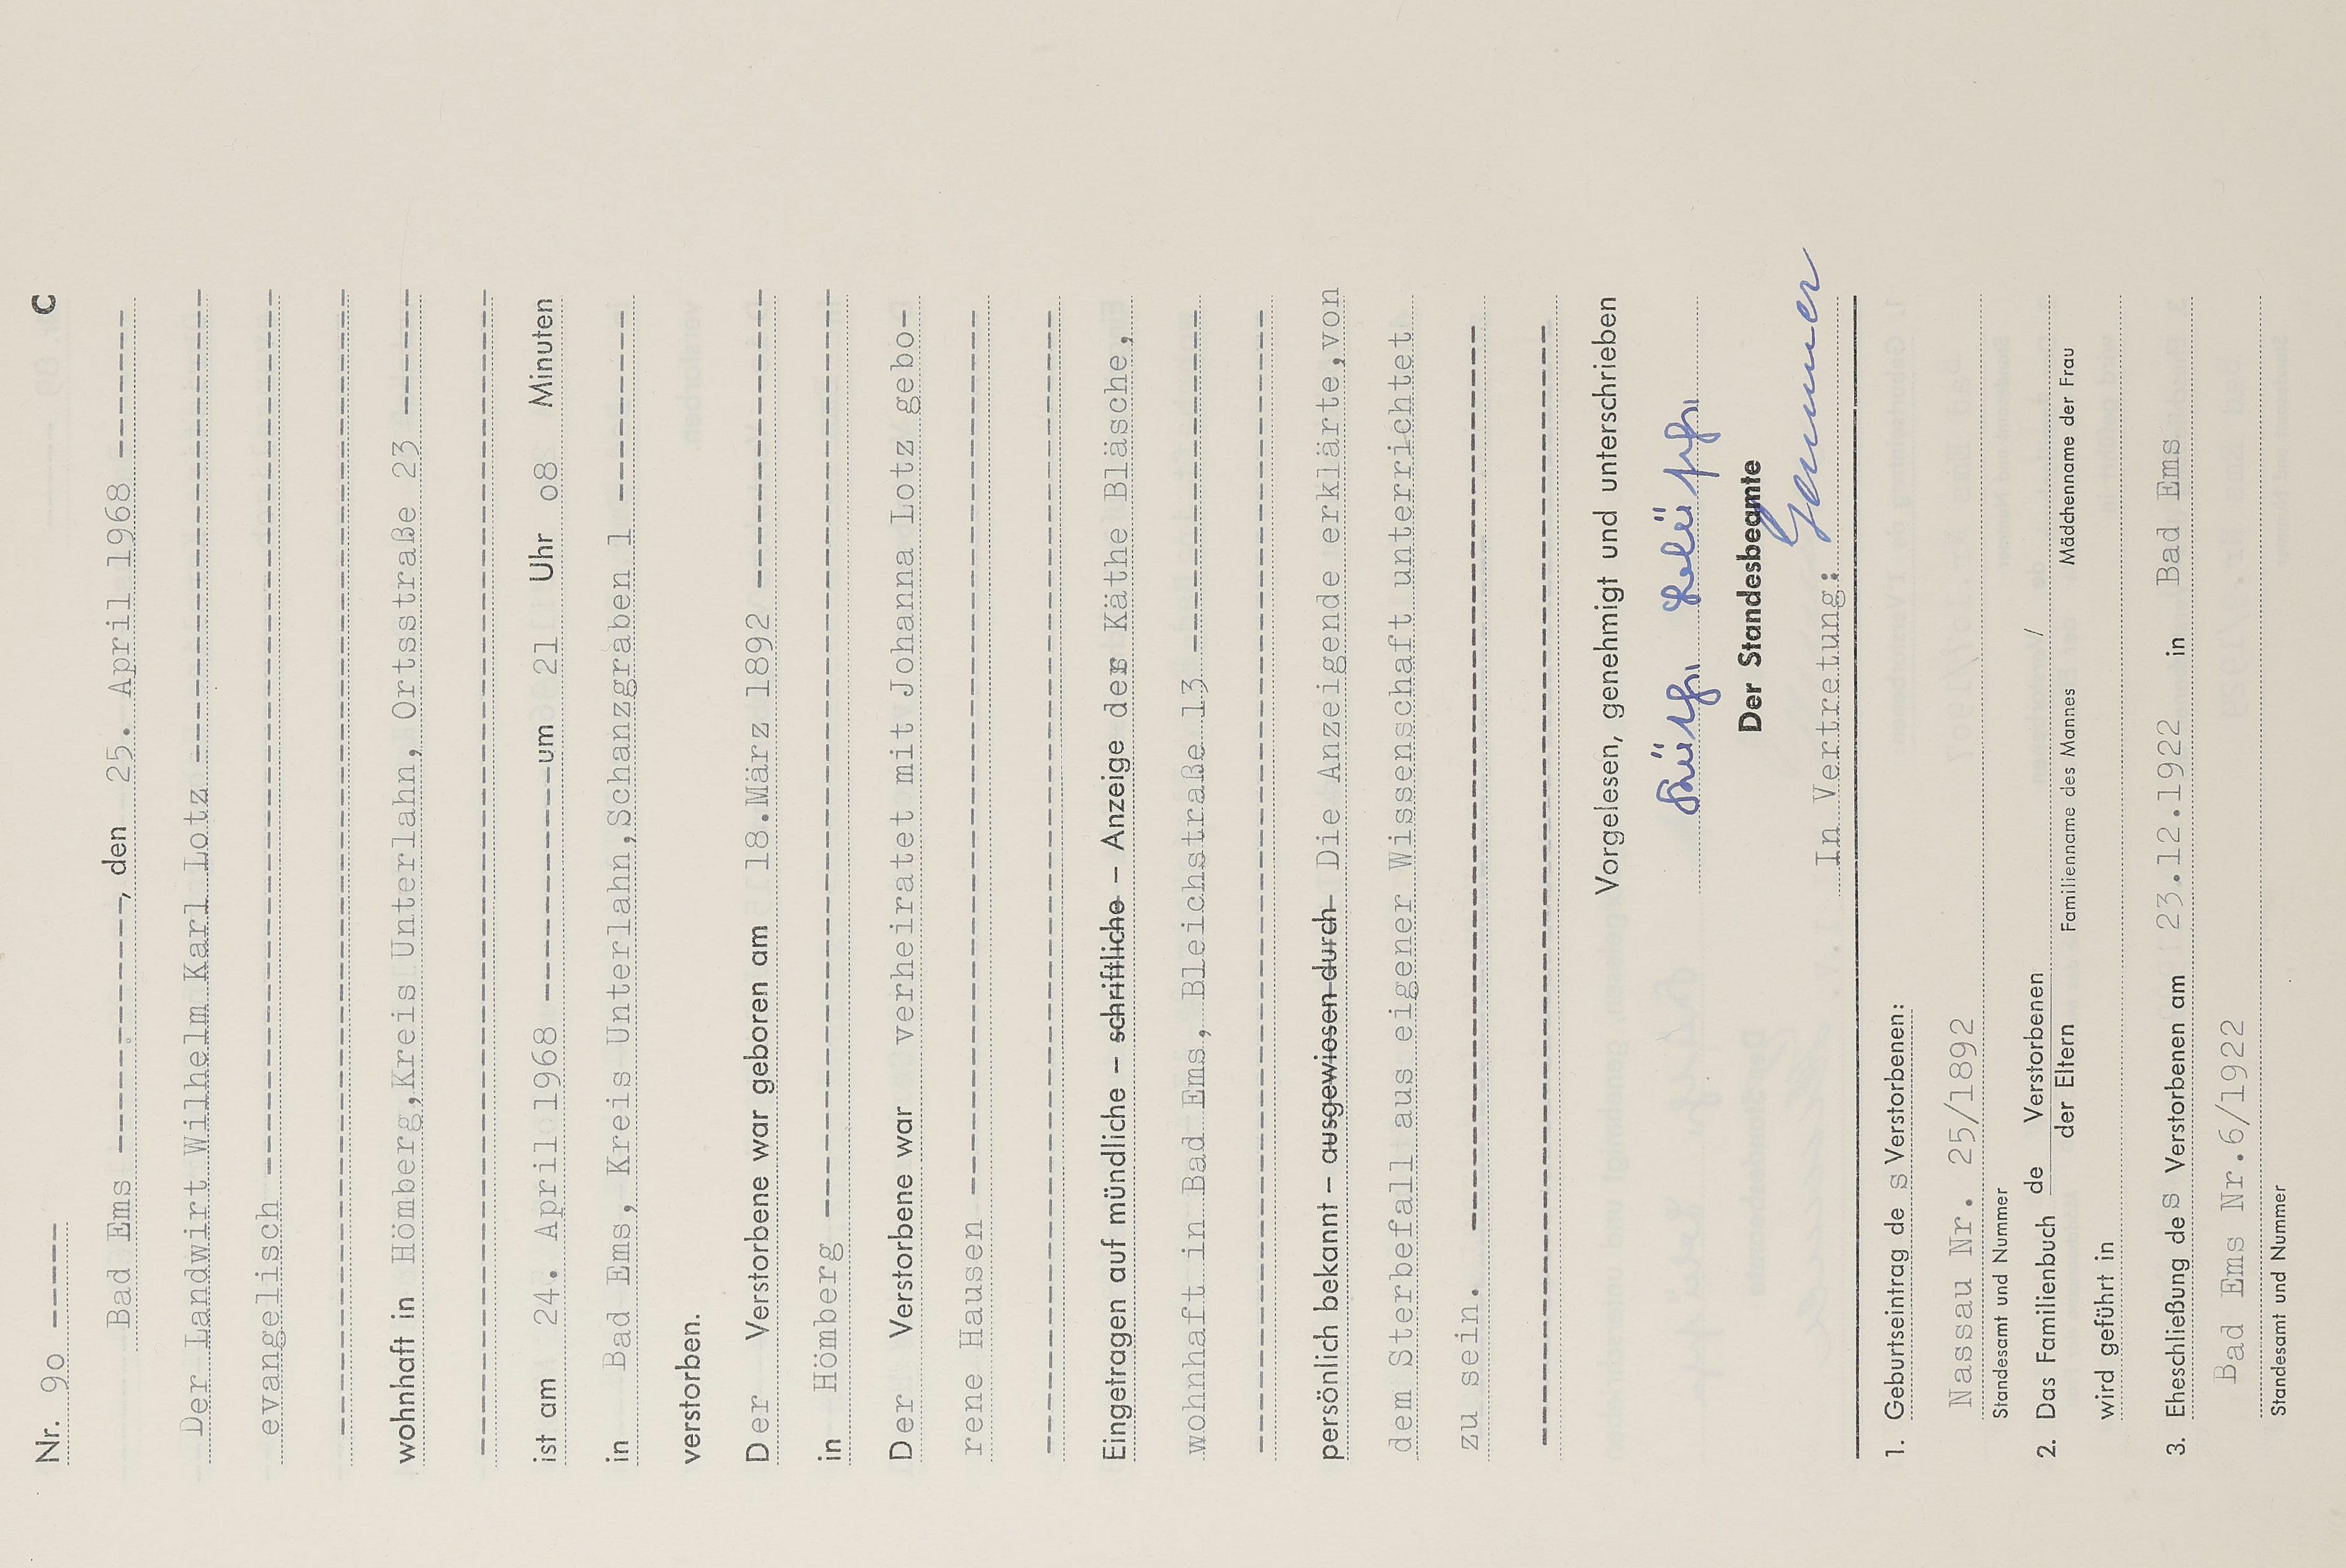 Nr. 9o ------ C
Bad Ems ----------------, den 25. April 1968 --------
Der Landwirt Wilhelm Karl Lotz ------------------------
evangelisch ------------------------------------------------
------------------------------------------------------------
wohnhaft in Hömberg,Kreis Unterlahn, Ortsstraße 23 -----
------------------------------------------------------------
ist am 24. April 1968 ------------um 21 Uhr o8 Minuten
in Bad Ems, Kreis Unterlahn,Schanzgraben 1 --------
verstorben.
Der Verstorbene war geboren am 18.März 1892 ------------
in Hömberg ------------------------------------------------
Der Verstorbene war verheiratet mit Johanna Lotz gebo-
rene Hausen ------------------------------------------------
------------------------------------------------------------
Eingetragen auf mündliche – schriftliche – Anzeige der Käthe Bläsche,
wohnhaft in Bad Ems, Bleichstraße 13 -------------------
------------------------------------------------------------
persönlich bekannt – ausgewiesen durch Die Anzeigende erklärte,von
dem Sterbefall aus eigener Wissenschaft unterrichtet
zu sein. ------------------------------------------------
------------------------------------------------------------
Vorgelesen, genehmigt und unterschrieben
Der Standesbeamte
In Vertretung:
1. Geburtseintrag des Verstorbenen:
Nassau Nr. 25/1892
Standesamt und Nummer
2. Das Familienbuch de Verstorbenen /
der Eltern Familienname des Mannes Mädchenname der Frau
wird geführt in
3. Eheschließung des Verstorbenen am 23.12.1922 in Bad Ems
Bad Ems Nr.6/1922
Standesamt und Nummer